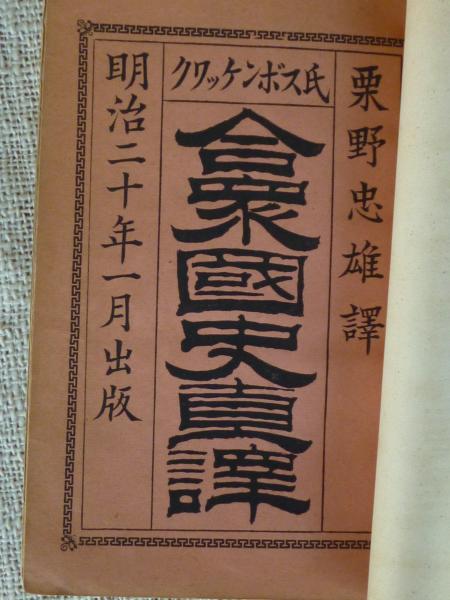 栗野忠雄譯
クワッケンボス氏
合衆國史直譯
明治二十年一月出版